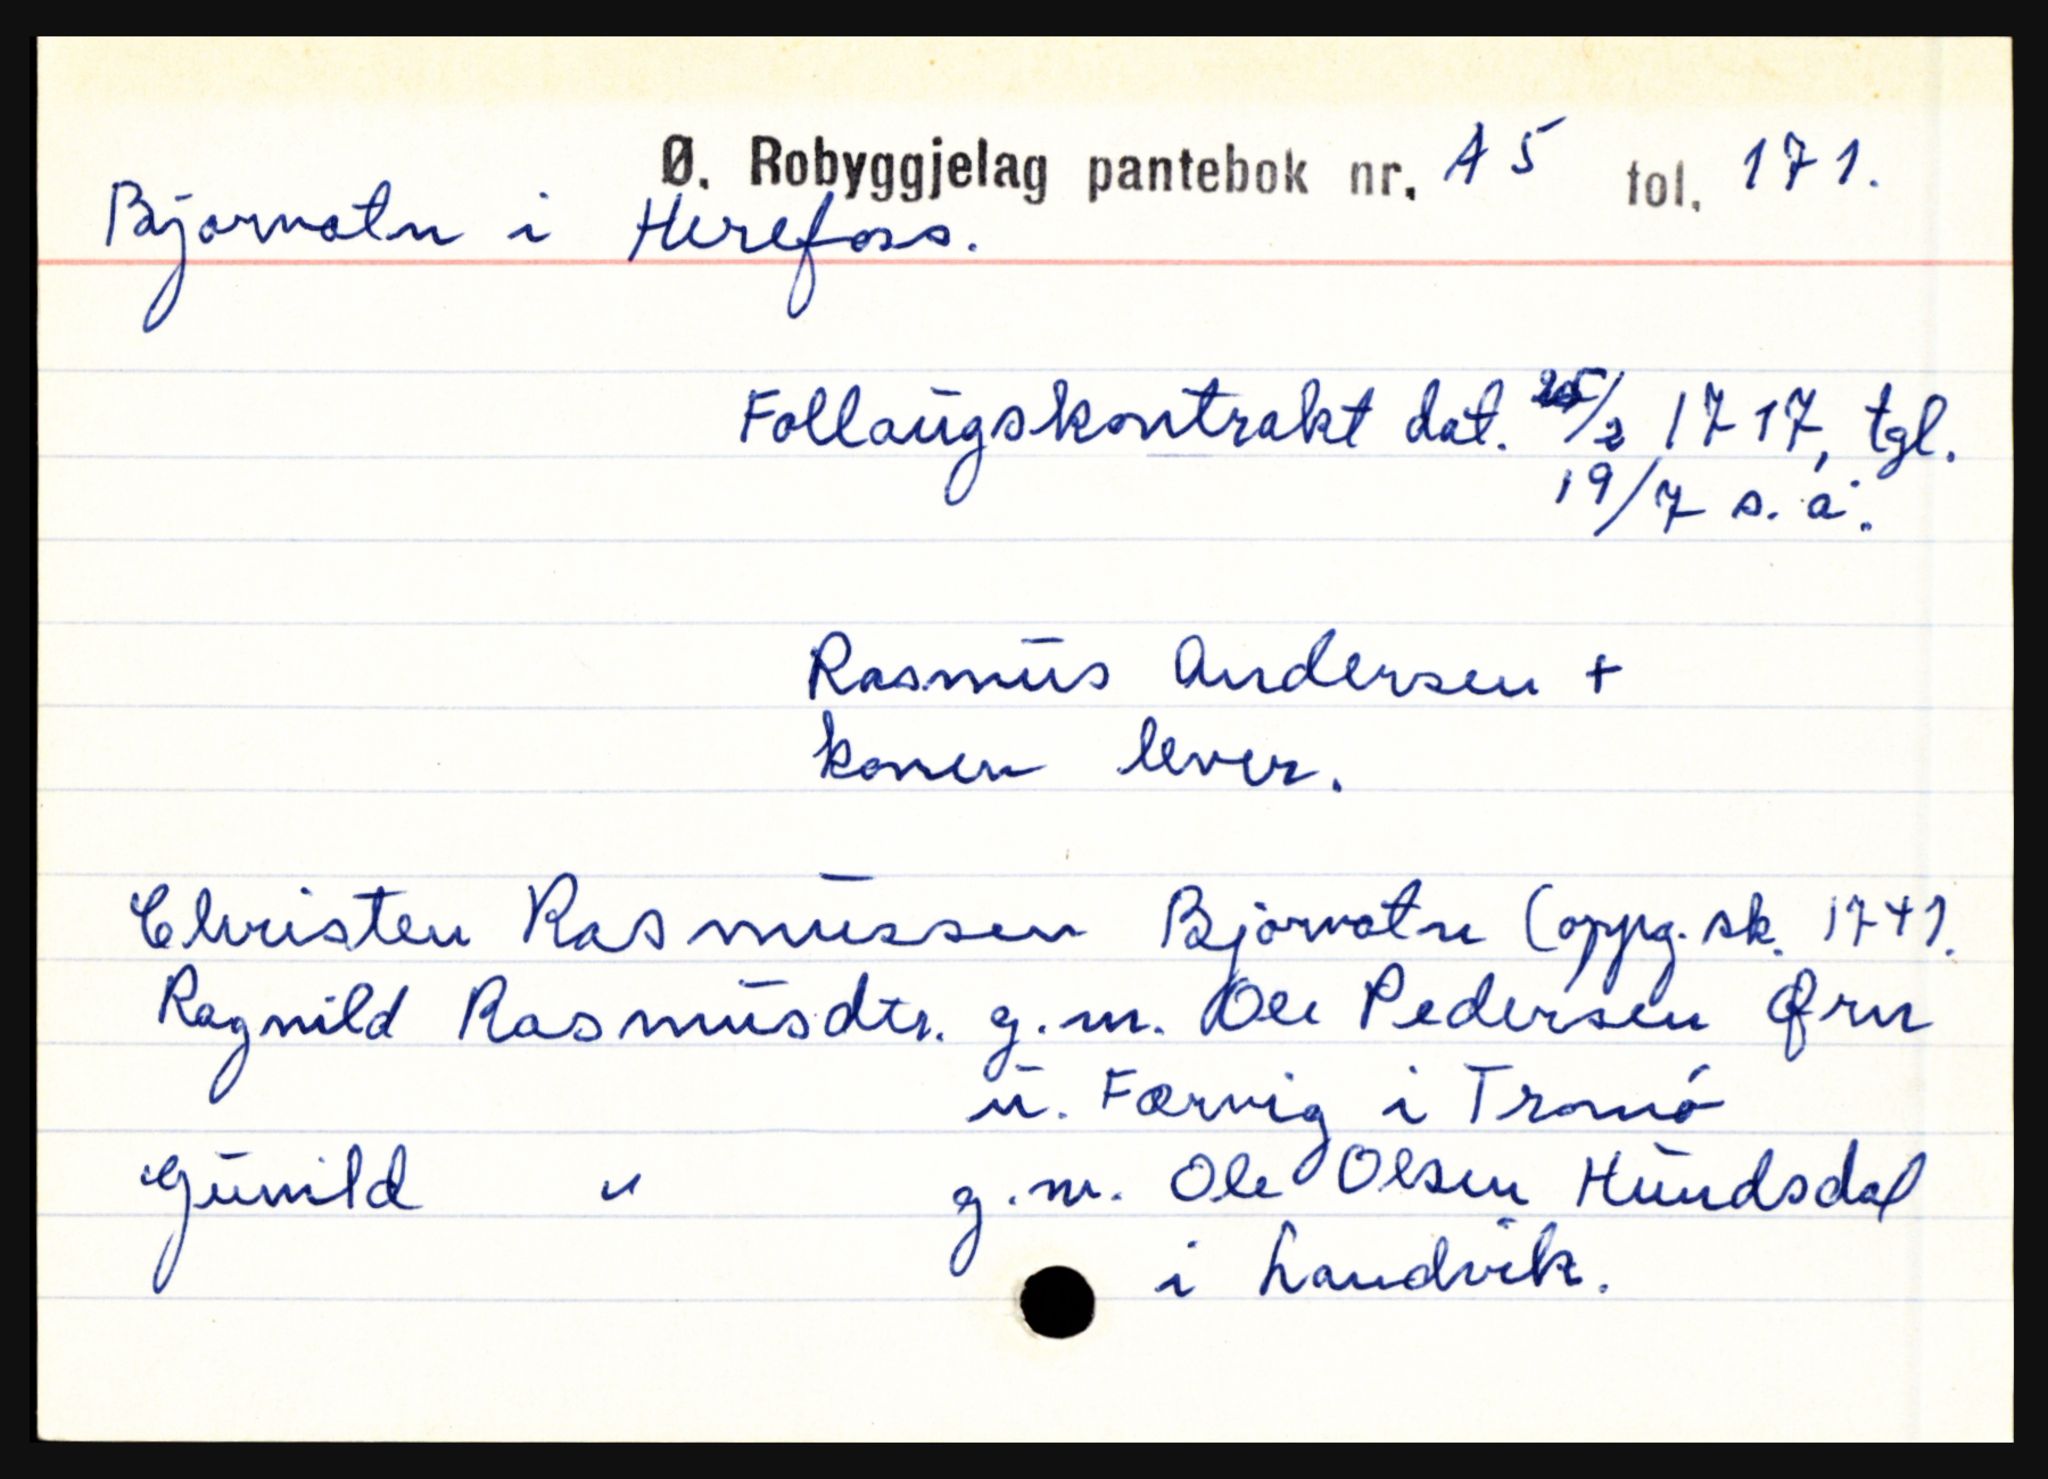 Ø. Robyggjelag pantebok nr. A 5 fol. 171.
Bjorvatn i Herefoss.
Follaugskontrakt dat. 25/2 1717, tgl.
19/7 s. å.
Rasmus Andersen +
konen lever.
Christen Rasmussen Bjorvatn (oppg. sk. 1741.
Ragnild Rasmusdtr. g.m. Ole Pedersen Ørn
u. Færvig i Tromó
Gunild " g.m. Ole Olsen Hundsdal
i Landvik.